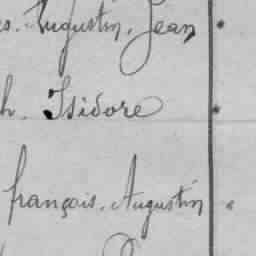 s. Augustin, Jean
h. Isidore
françois. Augustin